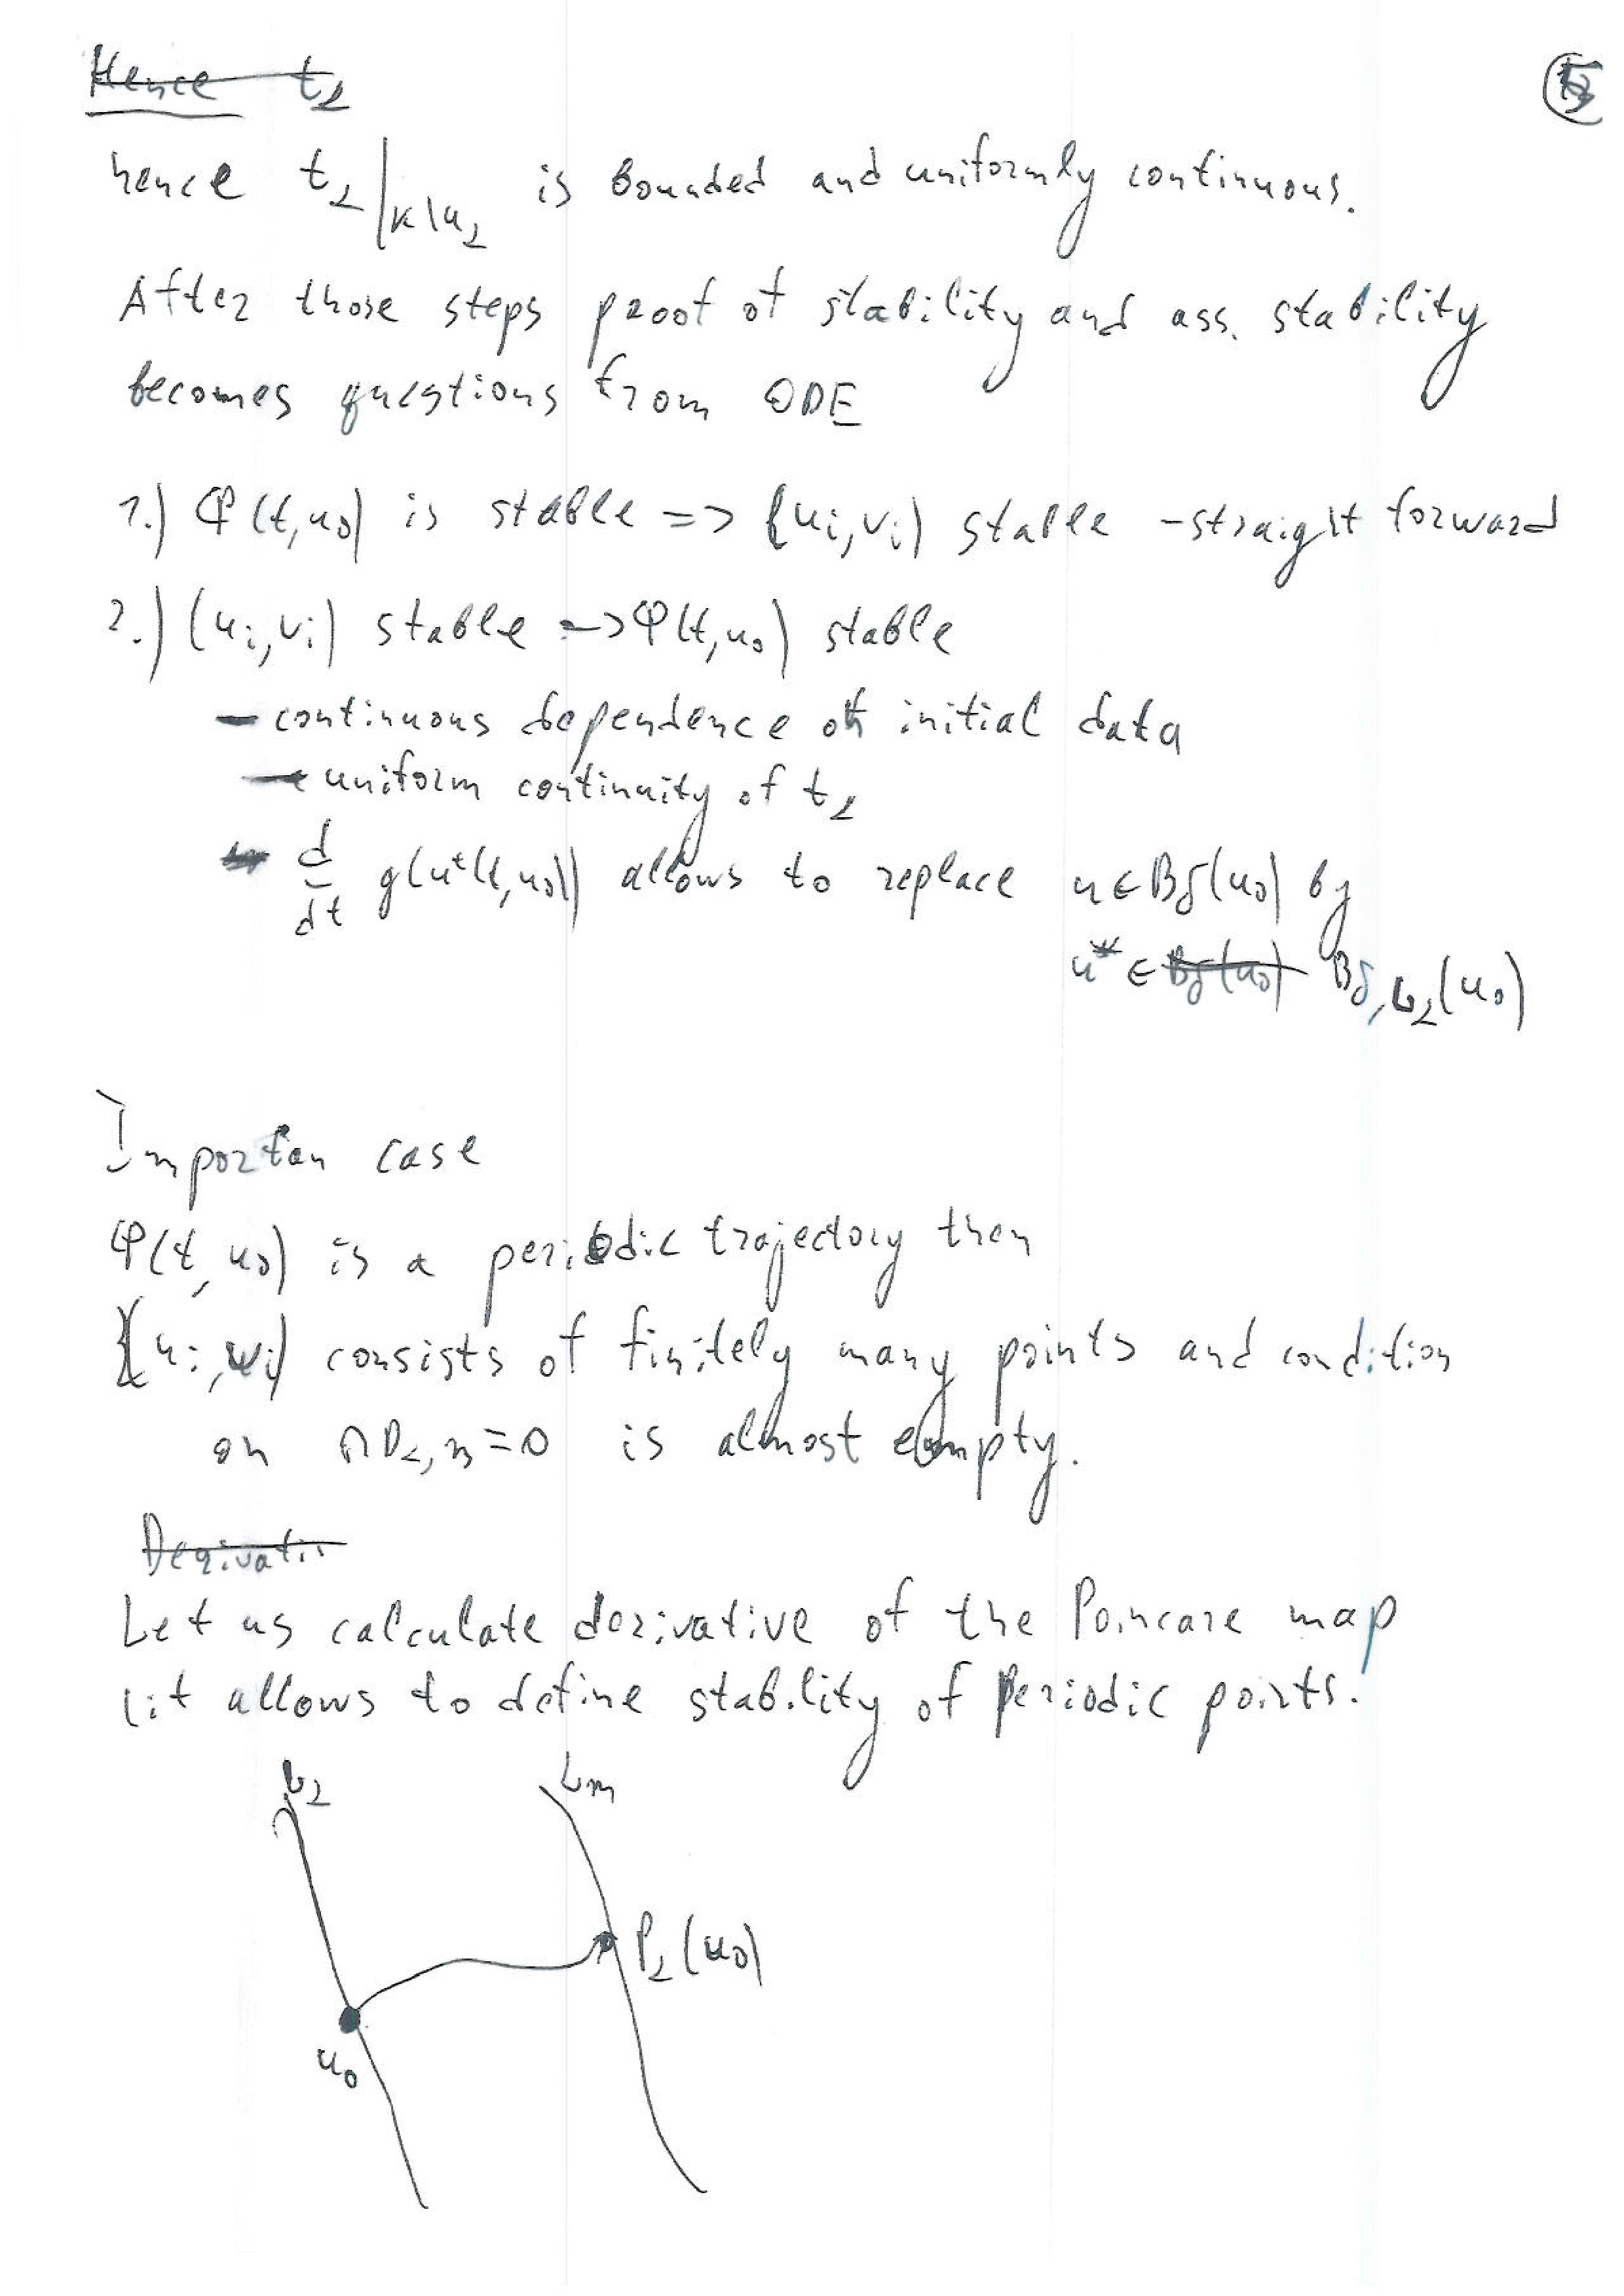 Hence t₂
hence t₂|ₖ\ᵤ₂ is bounded and uniformly continuous.
After those steps proof of stability and ass. stability
becomes questions from ODE
1.) φ(t,u₀) is stable => (uᵢ,vᵢ) stable - straight forward
2.) (uᵢ,vᵢ) stable => φ(t,u₀) stable
- continuous dependence on initial data
- uniform continuity of t₂
- d/dt g(u⁺(t,u₀)) allows to replace u ∈ Bδ(u₀) by
u* ∈ Bδ(u₀) Bδ,L₂(u₀)
Importan case
φ(t,u₀) is a periodic trajectory then
(uᵢ,vᵢ) consists of finitely many points and condition
on ∩D₂,ₘ=0 is almost empty.
Derivati
Let us calculate derivative of the Poincare map
(it allows to define stability of periodic points.
L₂ Lₘ
P₂(u₀)
u₀